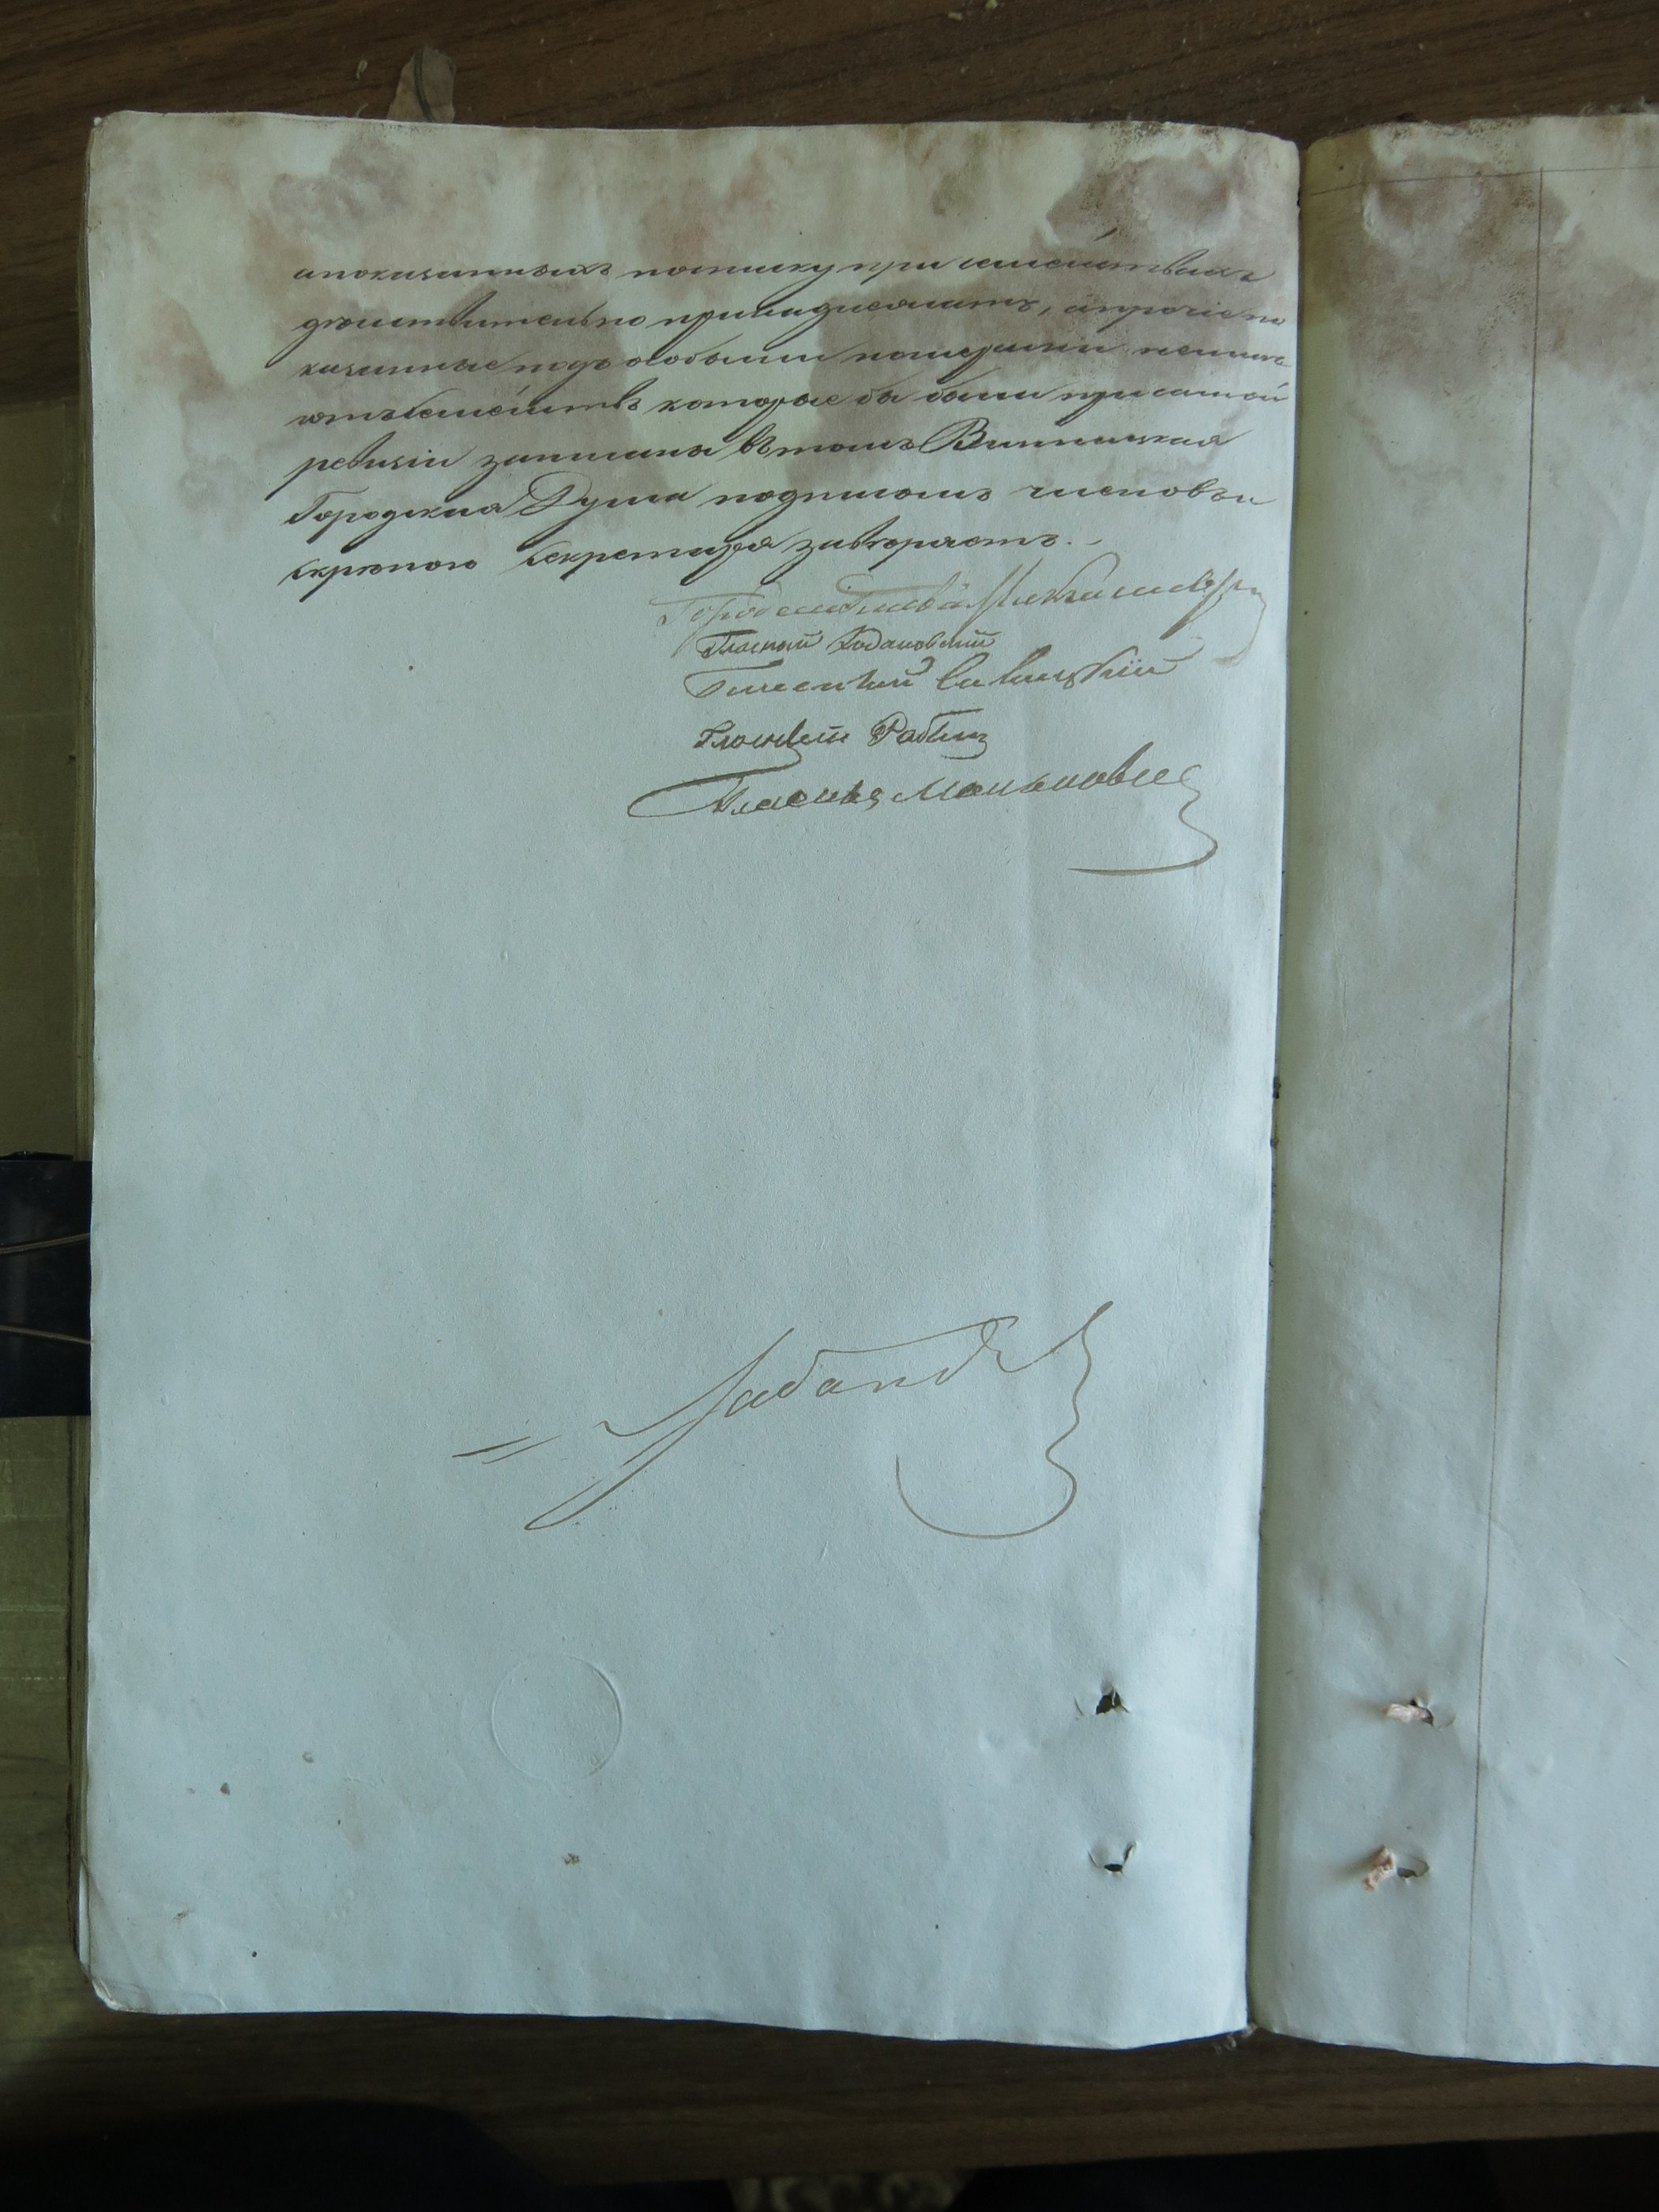 а показанныхъ по нимъ при семействахъ
дѣйствительно принадлежатъ, а прочіе по
казанные подъ особыми номерами неимѣ
ютъ семействъ которые бы были при самой
ревизіи записаны въ томъ Винницкая
Городская Дума подписомъ членовъ и
скрѣпою Секретаря завѣряетъ.
Городской Глава
Гласный Кодановскій
Гласный Савицкій
Гласный
Гласный